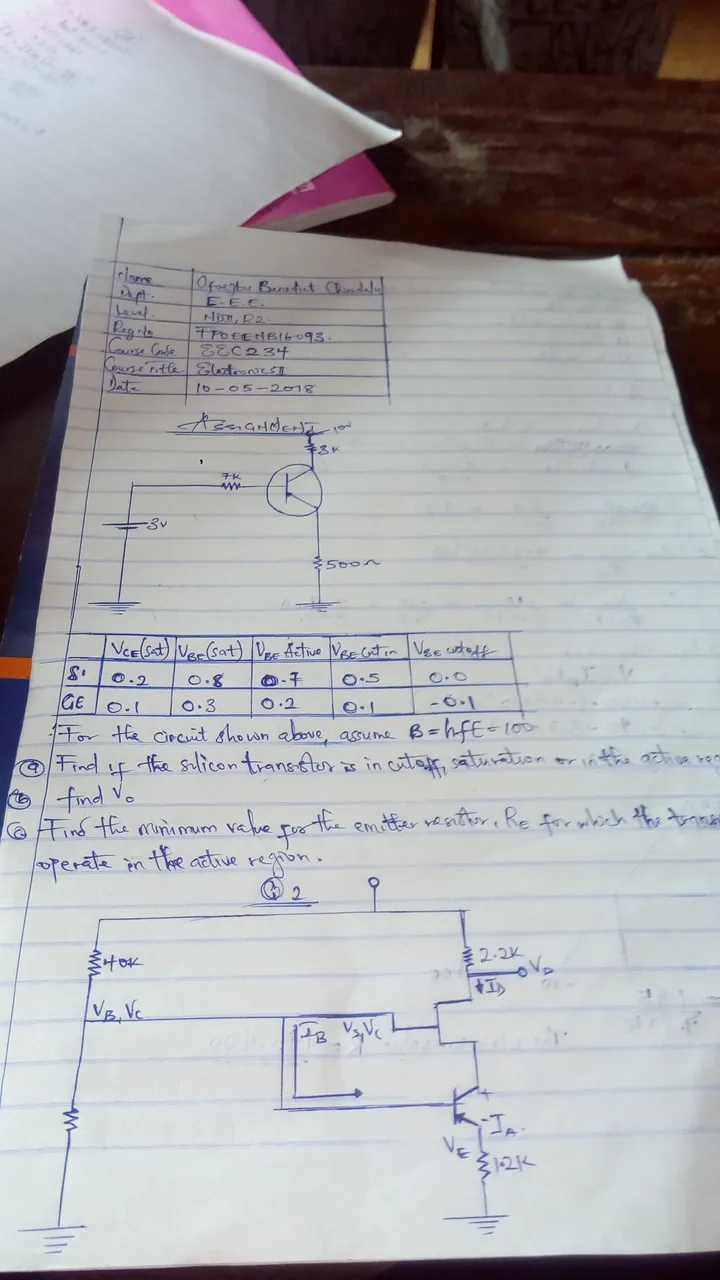 Name
Dept. E.E.E.
Level. NDII, R2.
Reg No
Course Code EEC234
Course Title Electronics II
Date 10-05-2018
ASSIGNMENT 10v
3K
7K
3v
500Ω
VCE(sat) VBE(sat) VBE Active VBE Cut in VBE cutoff
Si 0.2 0.8 0.7 0.5 0.0
GE 0.1 0.3 0.2 0.1 -0.1
For the circuit shown above, assume B = hfE = 100
(a) Find if the silicon transistor is in cutoff, saturation or in the active reg
(b) find Vo
(c) Find the minimum value for the emitter resistor, RE for which the trans
operate in the active region.
2
40K
2.2K
VD
ID
VB, VC
IB VS, VC
+
- IA.
VE
1.2K